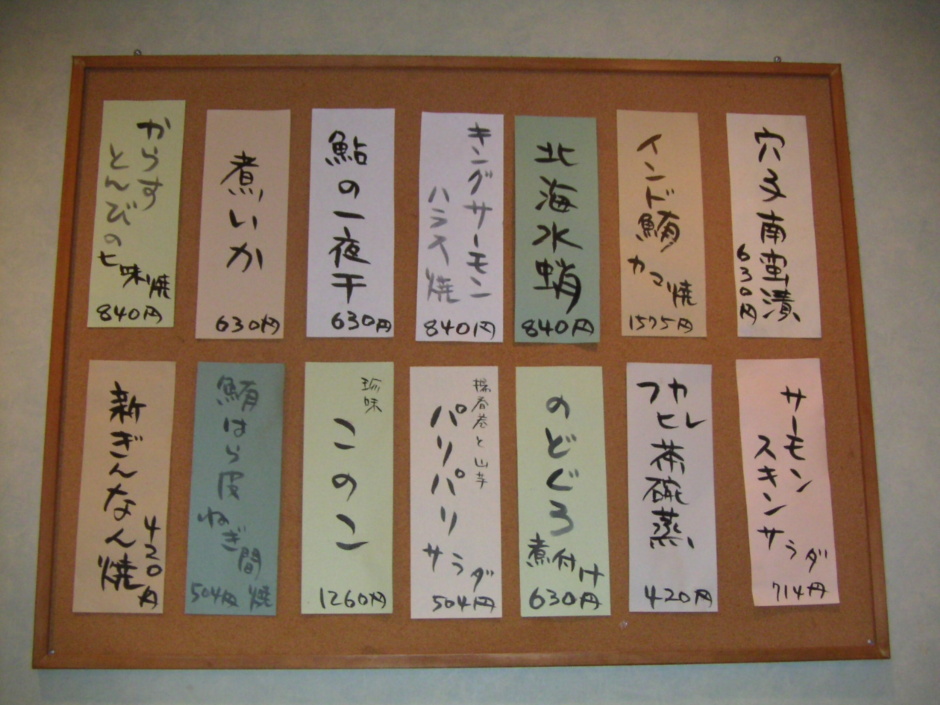 穴子南蛮漬
630円
インド鮪
カマ焼
1575円
北海水蛸
840円
キングサーモン
ハラス焼
840円
鮎の一夜干
630円
煮いか
630円
からす
とんびの
七味焼
840円
サーモン
スキン
サラダ
714円
フカヒレ
茶碗蒸
420円
のどぐろ
煮付け
630円
と山芋
パリパリ
サラダ
504円
珍味
このこ
1260円
鮪はら皮
ねぎ間焼
504円
新ぎんなん焼
420円